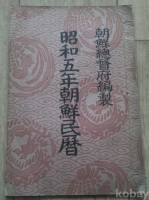 朝鮮總督府編製
昭和五年朝鮮民暦
kobay